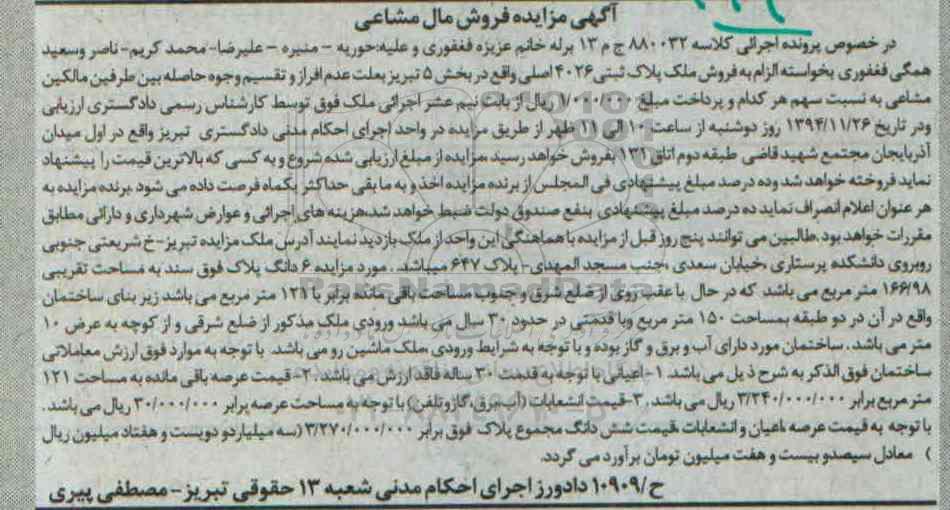 آگهی مزایده فروش مال مشاعی
در خصوص پرونده اجرائی کلاسه ۸۸۰۰۳۲ ج م ۱۳ برله خانم عزیزه فغفوری و علیه:حوریه - منیره - علیرضا-محمد کریم-ناصر وسعید
همگی فغفوری بخواسته الزام به فروش ملک پلاک ثبتی ۴۰۲۶ اصلی واقع در بخش ۵ تبریز بعلت عدم افراز و تقسیم وجوه حاصله بین طرفین مالکین
مشاعی به نسبت سهم هر کدام و پرداخت مبلغ ۱/۰۰۰/۰۰۰ ریال از بابت نیم عشر اجرائی ملک فوق توسط کارشناس رسمی دادگستری ارزیابی
ودر تاریخ ۱۳۹۴/۱۱/۲۶ روز دوشنبه از ساعت ۱۰ الی ۱۱ ظهر از طریق مزایده در واحد اجرای احکام مدنی دادگستری تبریز واقع در اول میدان
آذربایجان مجتمع شهید قاضی طبقه دوم اتاق ۱۳۱ بفروش خواهد رسید.مزایده از مبلغ ارزیابی شده شروع و به کسی که بالاترین قیمت را پیشنهاد
نماید فروخته خواهد شد وده درصد مبلغ پیشنهادی فی المجلس از برنده مزایده اخذ و به ما بقی حداکثر یکماه فرصت داده می شود .برنده مزایده به
هر عنوان اعلام انصراف نماید ده درصد مبلغ پیشنهادی بنفع صندوق دولت ضبط خواهد شد.هزینه های اجرائی و عوارض شهرداری و دارائی مطابق
مقررات خواهد بود .طالبین می توانند پنج روز قبل از مزایده با هماهنگی این واحد از ملک بازدید نمایند آدرس ملک مزایده تبریز-خ شریعتی جنوبی
روبروی دانشکده پرستاری ،خیابان سعدی ،جنب مسجد المهدی- پلاک ۶۴۷ میباشد. . مورد مزایده ۶ دانگ پلاک فوق سند به مساحت تقریبی
۱۶۶/۹۸ متر مربع می باشد که در حال با عقب روی از ضلع شرق و جنوب مساحت باقی مانده برابر با ۱۲۱ متر مربع می باشد زیر بنای ساختمان
واقع در آن در دو طبقه بمساحت ۱۵۰ متر مربع وبا قدمتی در حدود ۳۰ سال می باشد ورودی ملک مذکور از ضلع شرقی و از کوچه به عرض ۱۰
متر می باشد. ساختمان مورد دارای آب و برق و گاز بوده و با توجه به شرایط ورودی ،ملک ماشین رو می باشد. با توجه به موارد فوق ارزش معاملاتی
ساختمان فوق الذکر به شرح ذیل می باشد. ۱-اعیانی با توجه به قدمت ۳۰ ساله فاقد ارزش می باشد .۲- قیمت عرصه باقی مانده به مساحت ۱۲۱
متر مربع برابر ۳/۲۴۰/۰۰۰/۰۰۰ ریال می باشد .۳-قیمت انشعابات (آب،برق،گازوتلفن) با توجه به مساحت عرصه برابر ۳۰/۰۰۰/۰۰۰ ریال می باشد .
با توجه به قیمت عرصه ،اعیان و انشعابات ،قیمت شش دانگ مجموع پلاک فوق برابر ۳/۲۷۰/۰۰۰/۰۰۰ (سه میلیاردو دویست و هفتاد میلیون ریال
) معادل سیصدو بیست و هفت میلیون تومان برآورد می گردد.
ح/۱۰۹۰۹ دادورز اجرای احکام مدنی شعبه ۱۳ حقوقی تبریز-مصطفی پیری
ParsNamadData